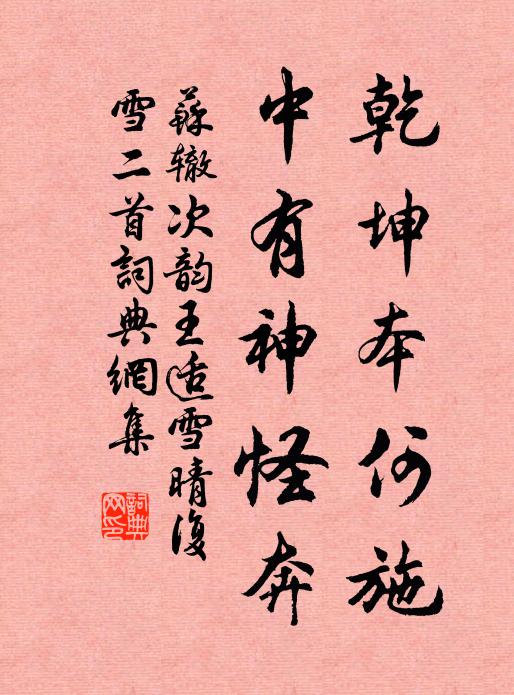 乾坤本何施
中有神怪奔
蘇辙次韵王适雪晴復
雪二首詞典網集
詞典網印